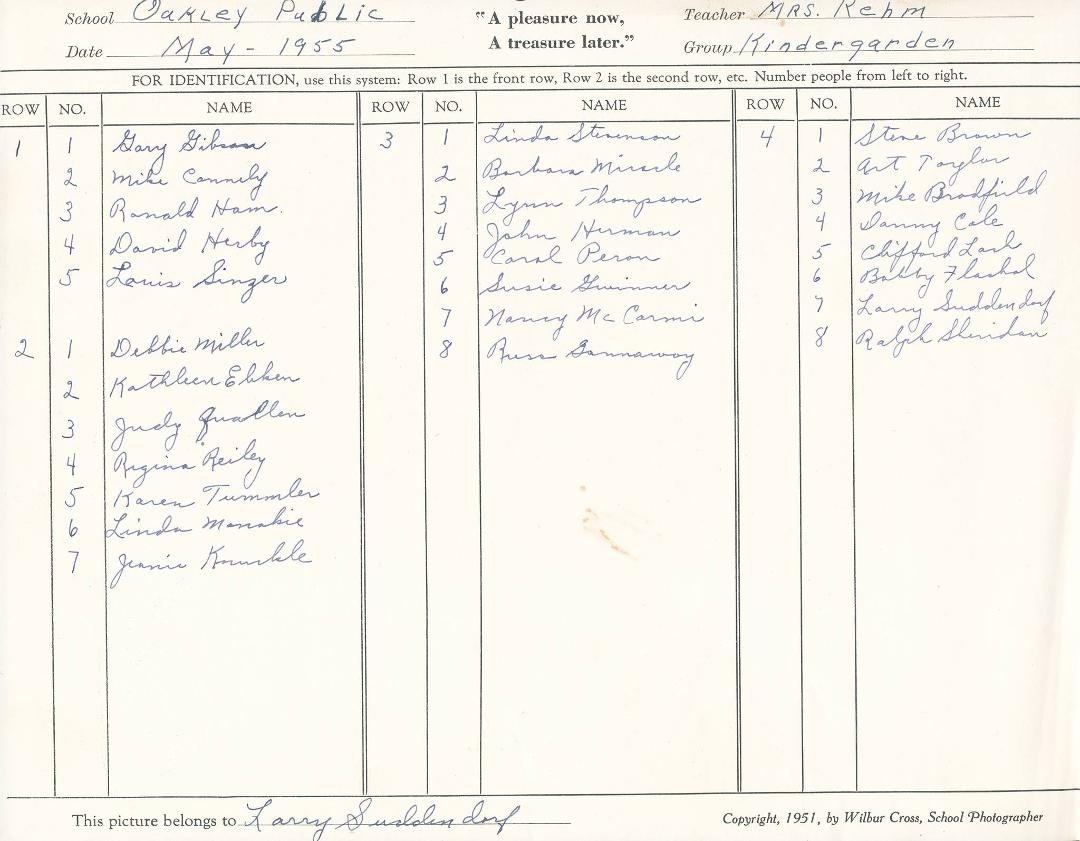 School Oakley Public
"A pleasure now,
A treasure later."
Teacher Mrs. Rehm
Date May - 1955
Group Kindergarden
FOR IDENTIFICATION, use this system: Row 1 is the front row, Row 2 is the second row, etc. Number people from left to right.
ROW NO. NAME ROW NO. NAME ROW NO. NAME
1 1 Gary Gibson
2 Mike Connely
3 Ronald Ham.
4 David Herby
5 Louis Singer
2 1 Debbie Miller
2 Kathleen Ebken
3 Judy Quallen
4 Regina Reiley
5 Karen Tummler
6 Linda
7 Jeanie
3 1 Linda Stevenson
2 Barbara Miracle
3 Lynn Thompson
4 John Herman
5 Carol Peron
6 Susie Gwinner
7 Nancy McCormi
8 Russ Gannaway
4 1 Steve Brown
2 Art Taylor
3 Mike Bradfield
4 Danny Cole
5 Clifford Lash
6 Bobby
7 Larry Suddendorf
8 Ralph Sheridan
This picture belongs to Larry Suddendorf
Copyright, 1951, by Wilbur Cross, School Photographer